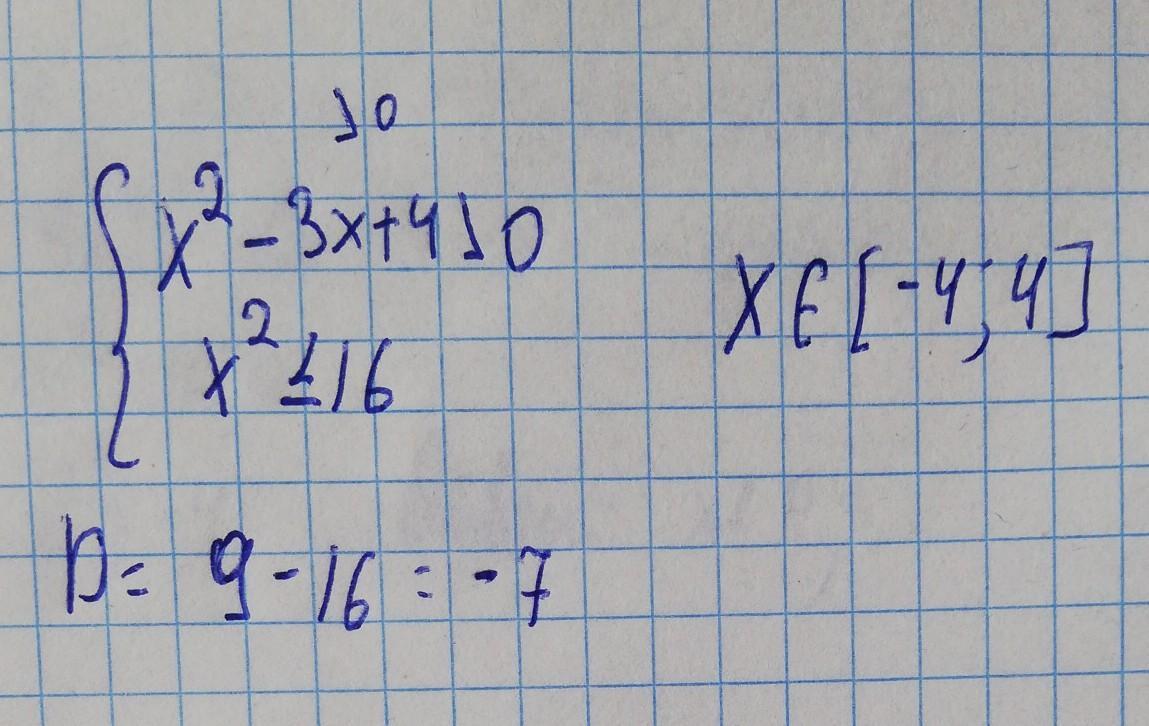 >0
x² - 3x + 4 > 0
x² ≤ 16
x ∈ [-4; 4]
D = 9 - 16 = -7